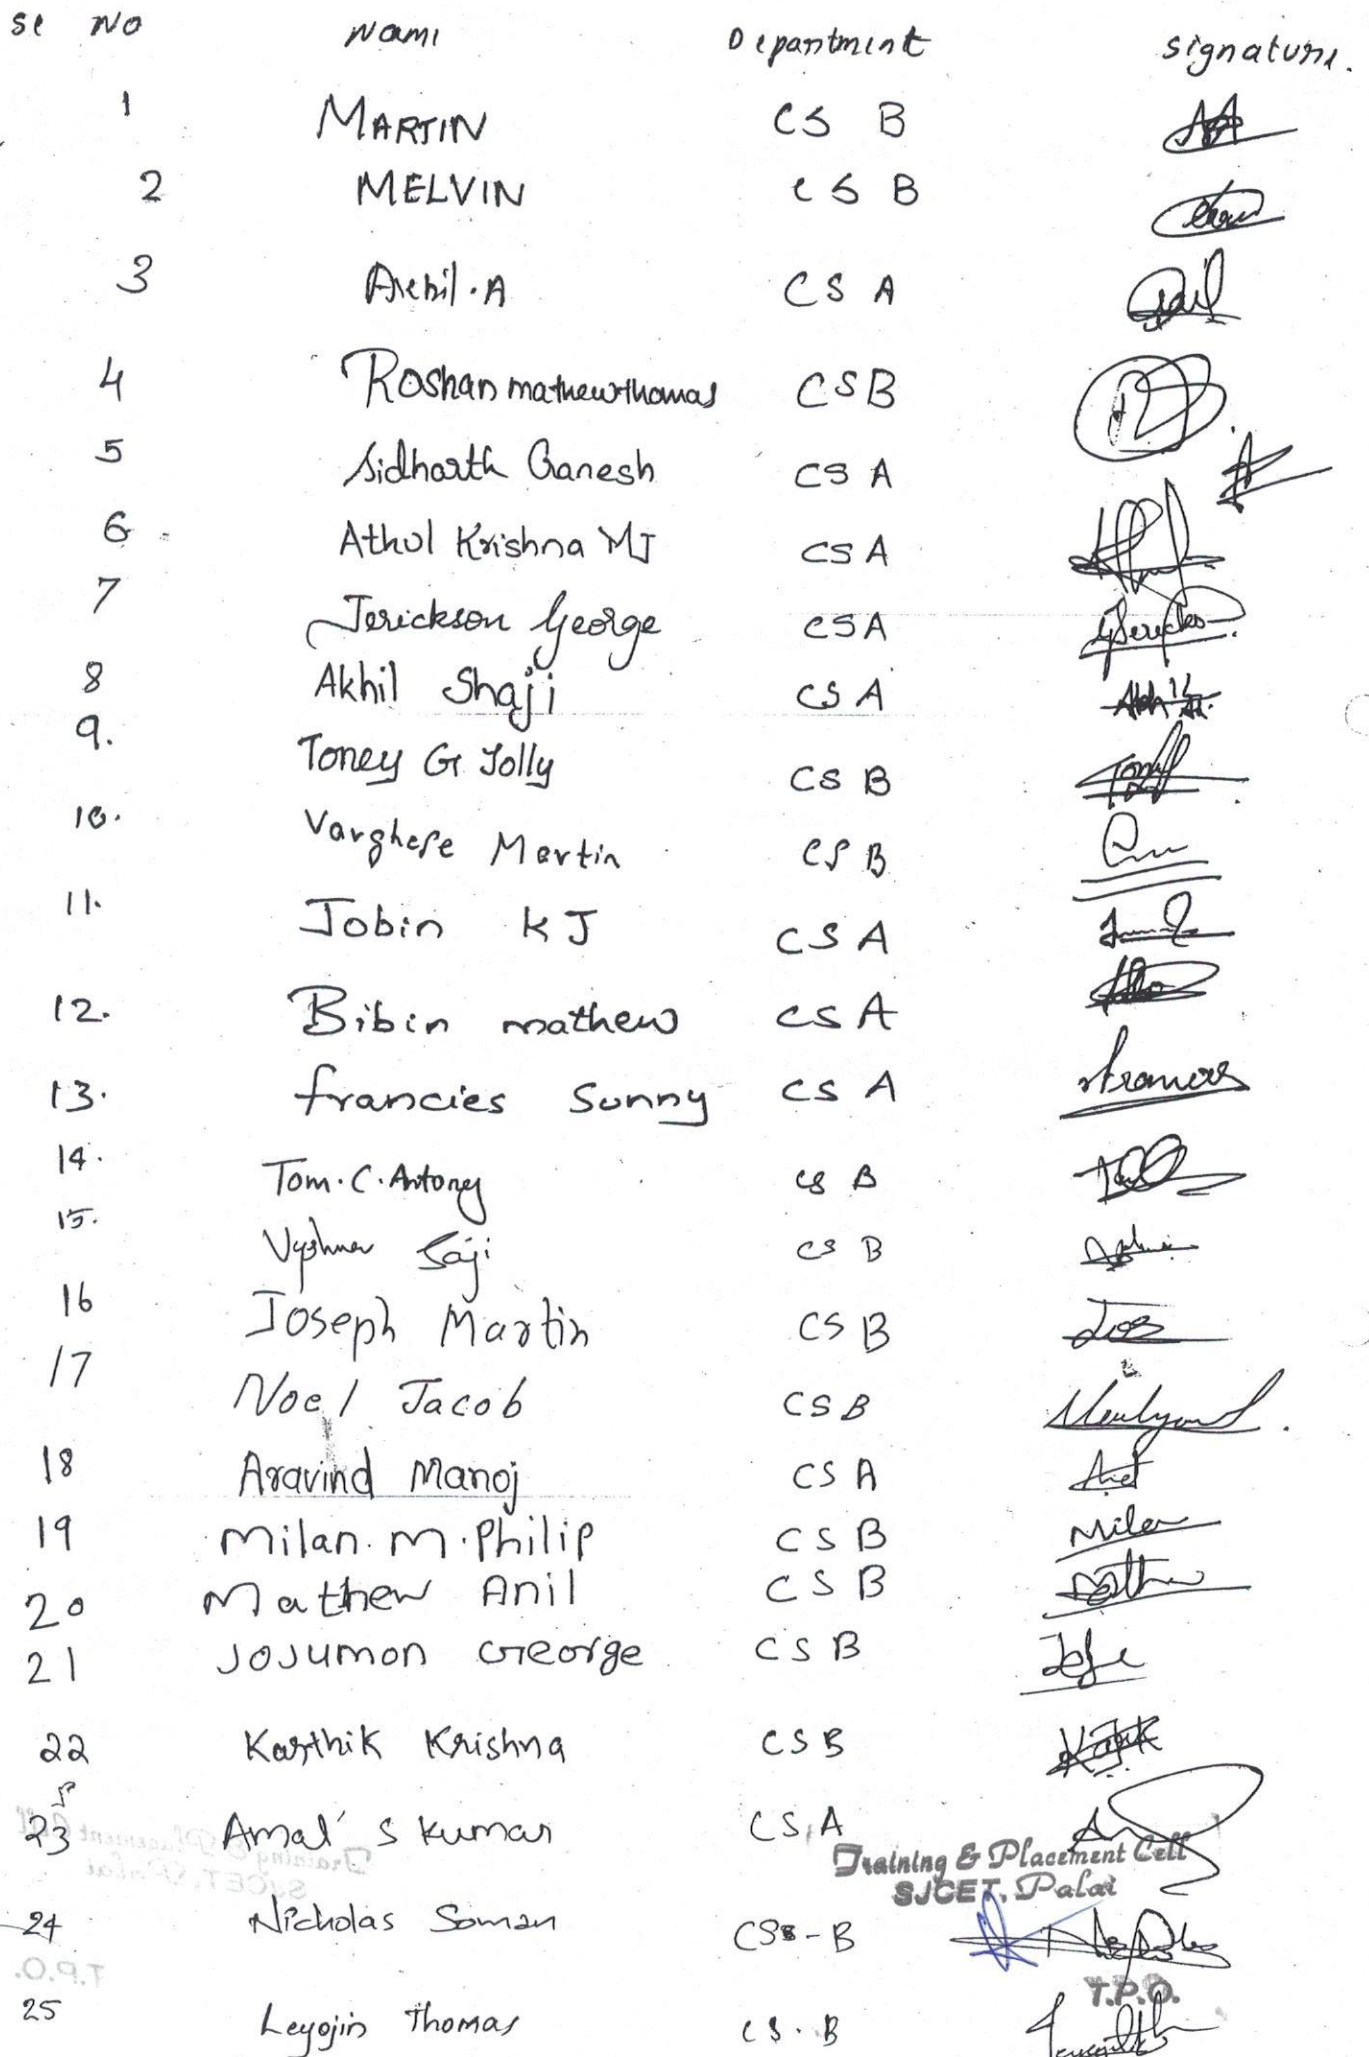 Sl No Name Department signature.
1 MARTIN CS B
2 MELVIN CS B
3 A.A CS A
4 Roshan mathew thomas CS B
5 Sidharth Ganesh CS A
6 Athul Krishna MJ CS A
7 Jerickson George CS A
8 Akhil Shaji CS A
9. Toney G Jolly CS B
10. Varghese Martin CS B
11. Jobin K J CS A
12. Bibin mathew CS A
13. francies Sunny CS A
14. Tom.C.Antony CS B
15. Vyshnav Saji CS B
16 Joseph Martin CS B
17 Noel Jacob CS B
18 Aravind Manoj CS A
19 Milan.M.Philip CS B
20 Mathew Anil CS B
21 JOJUMON George CS B
22 Karthik Krishna CS B
23 Amal S Kumar CS A
Training & Placement Cell
SJCET, Palai
24 Nicholas Soman CS-B
T.P.O.
25 Leyojin Thomas CS.B